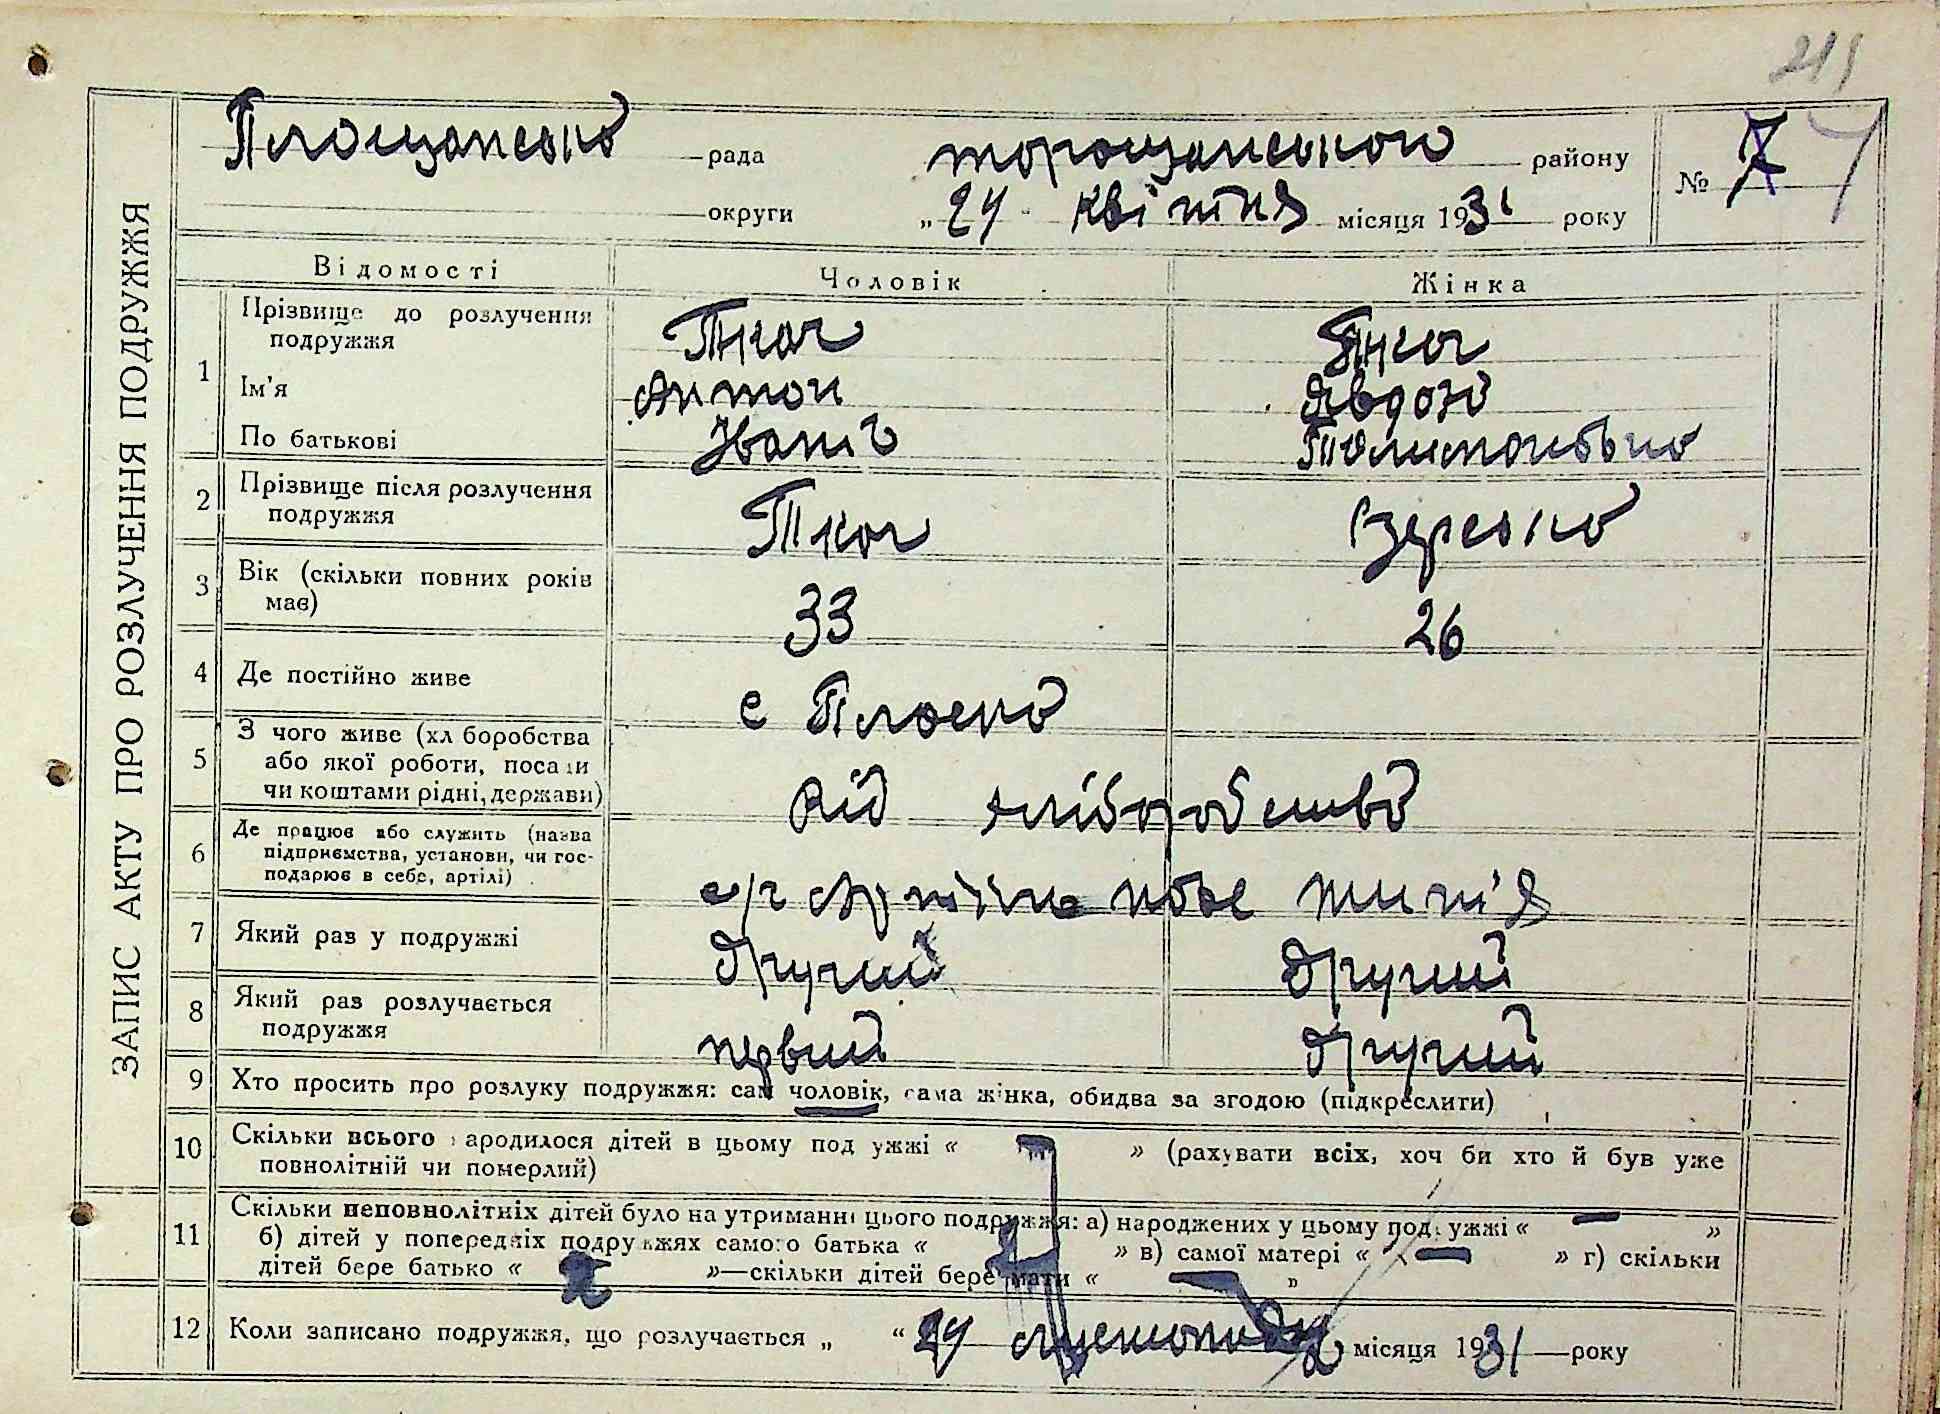 211
ЗАПИС АКТУ ПРО РОЗЛУЧЕННЯ ПОДРУЖЖЯ
Площанська рада торощанського району № 7
округи „ 24 " квітня місяця 1931 року
Відомості Чоловік Жінка
1 Прізвище до розлучення подружжя Ткач Ткач
Ім'я Антон Явдоха
По батькові Іваніч
2 Прізвище після розлучення подружжя Ткач
3 Вік (скільки повних років має) 33 26
4 Де постійно живе с Плоска
5 З чого живе (хліборобства або якої роботи, посади чи коштами рідні, держави) від хліборобства
6 Де працює або служить (назва підприємства, установи, чи господарює в себе, артілі) с/г нове життя
7 Який раз у подружжі другий другий
8 Який раз розлучається подружжя первий другий
9 Хто просить про розлуку подружжя: сам чоловік, сама жінка, обидва за згодою (підкреслити)
10 Скільки всього народилося дітей в цьому подружжі « » (рахувати всіх, хоч би хто й був уже
повнолітній чи померлий)
11 Скільки неповнолітніх дітей було на утриманні цього подружжя: а) народжених у цьому подружжі « — »
б) дітей у попередніх подружжях самого батька « » в) самої матері « — » г) скільки
дітей бере батько « » — скільки дітей бере мати « — »
12 Коли записано подружжя, що розлучається „ “ 24 місяця 1931 — року